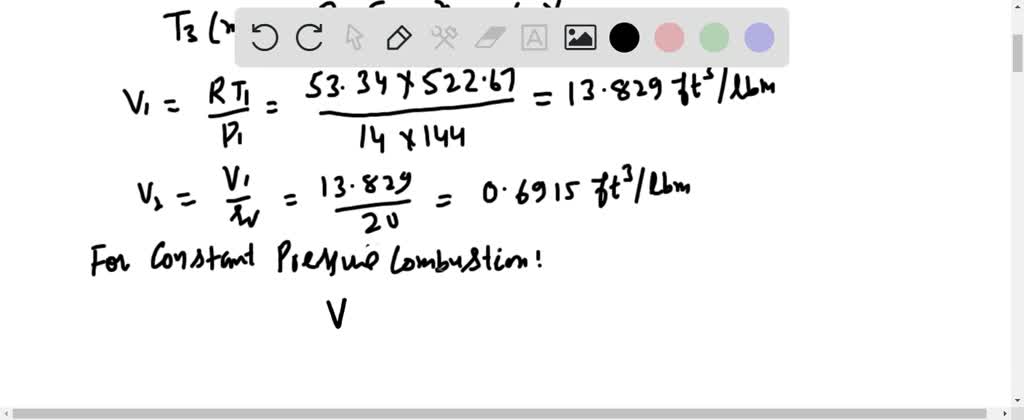 T₃ (
V₁ = RT₁/P₁ = 53.34 × 522.67 / 14 × 144 = 13.829 ft³/lbm
V₂ = V₁/rv = 13.829/20 = 0.6915 ft³/lbm
For Constant Pressure Combustion:
V